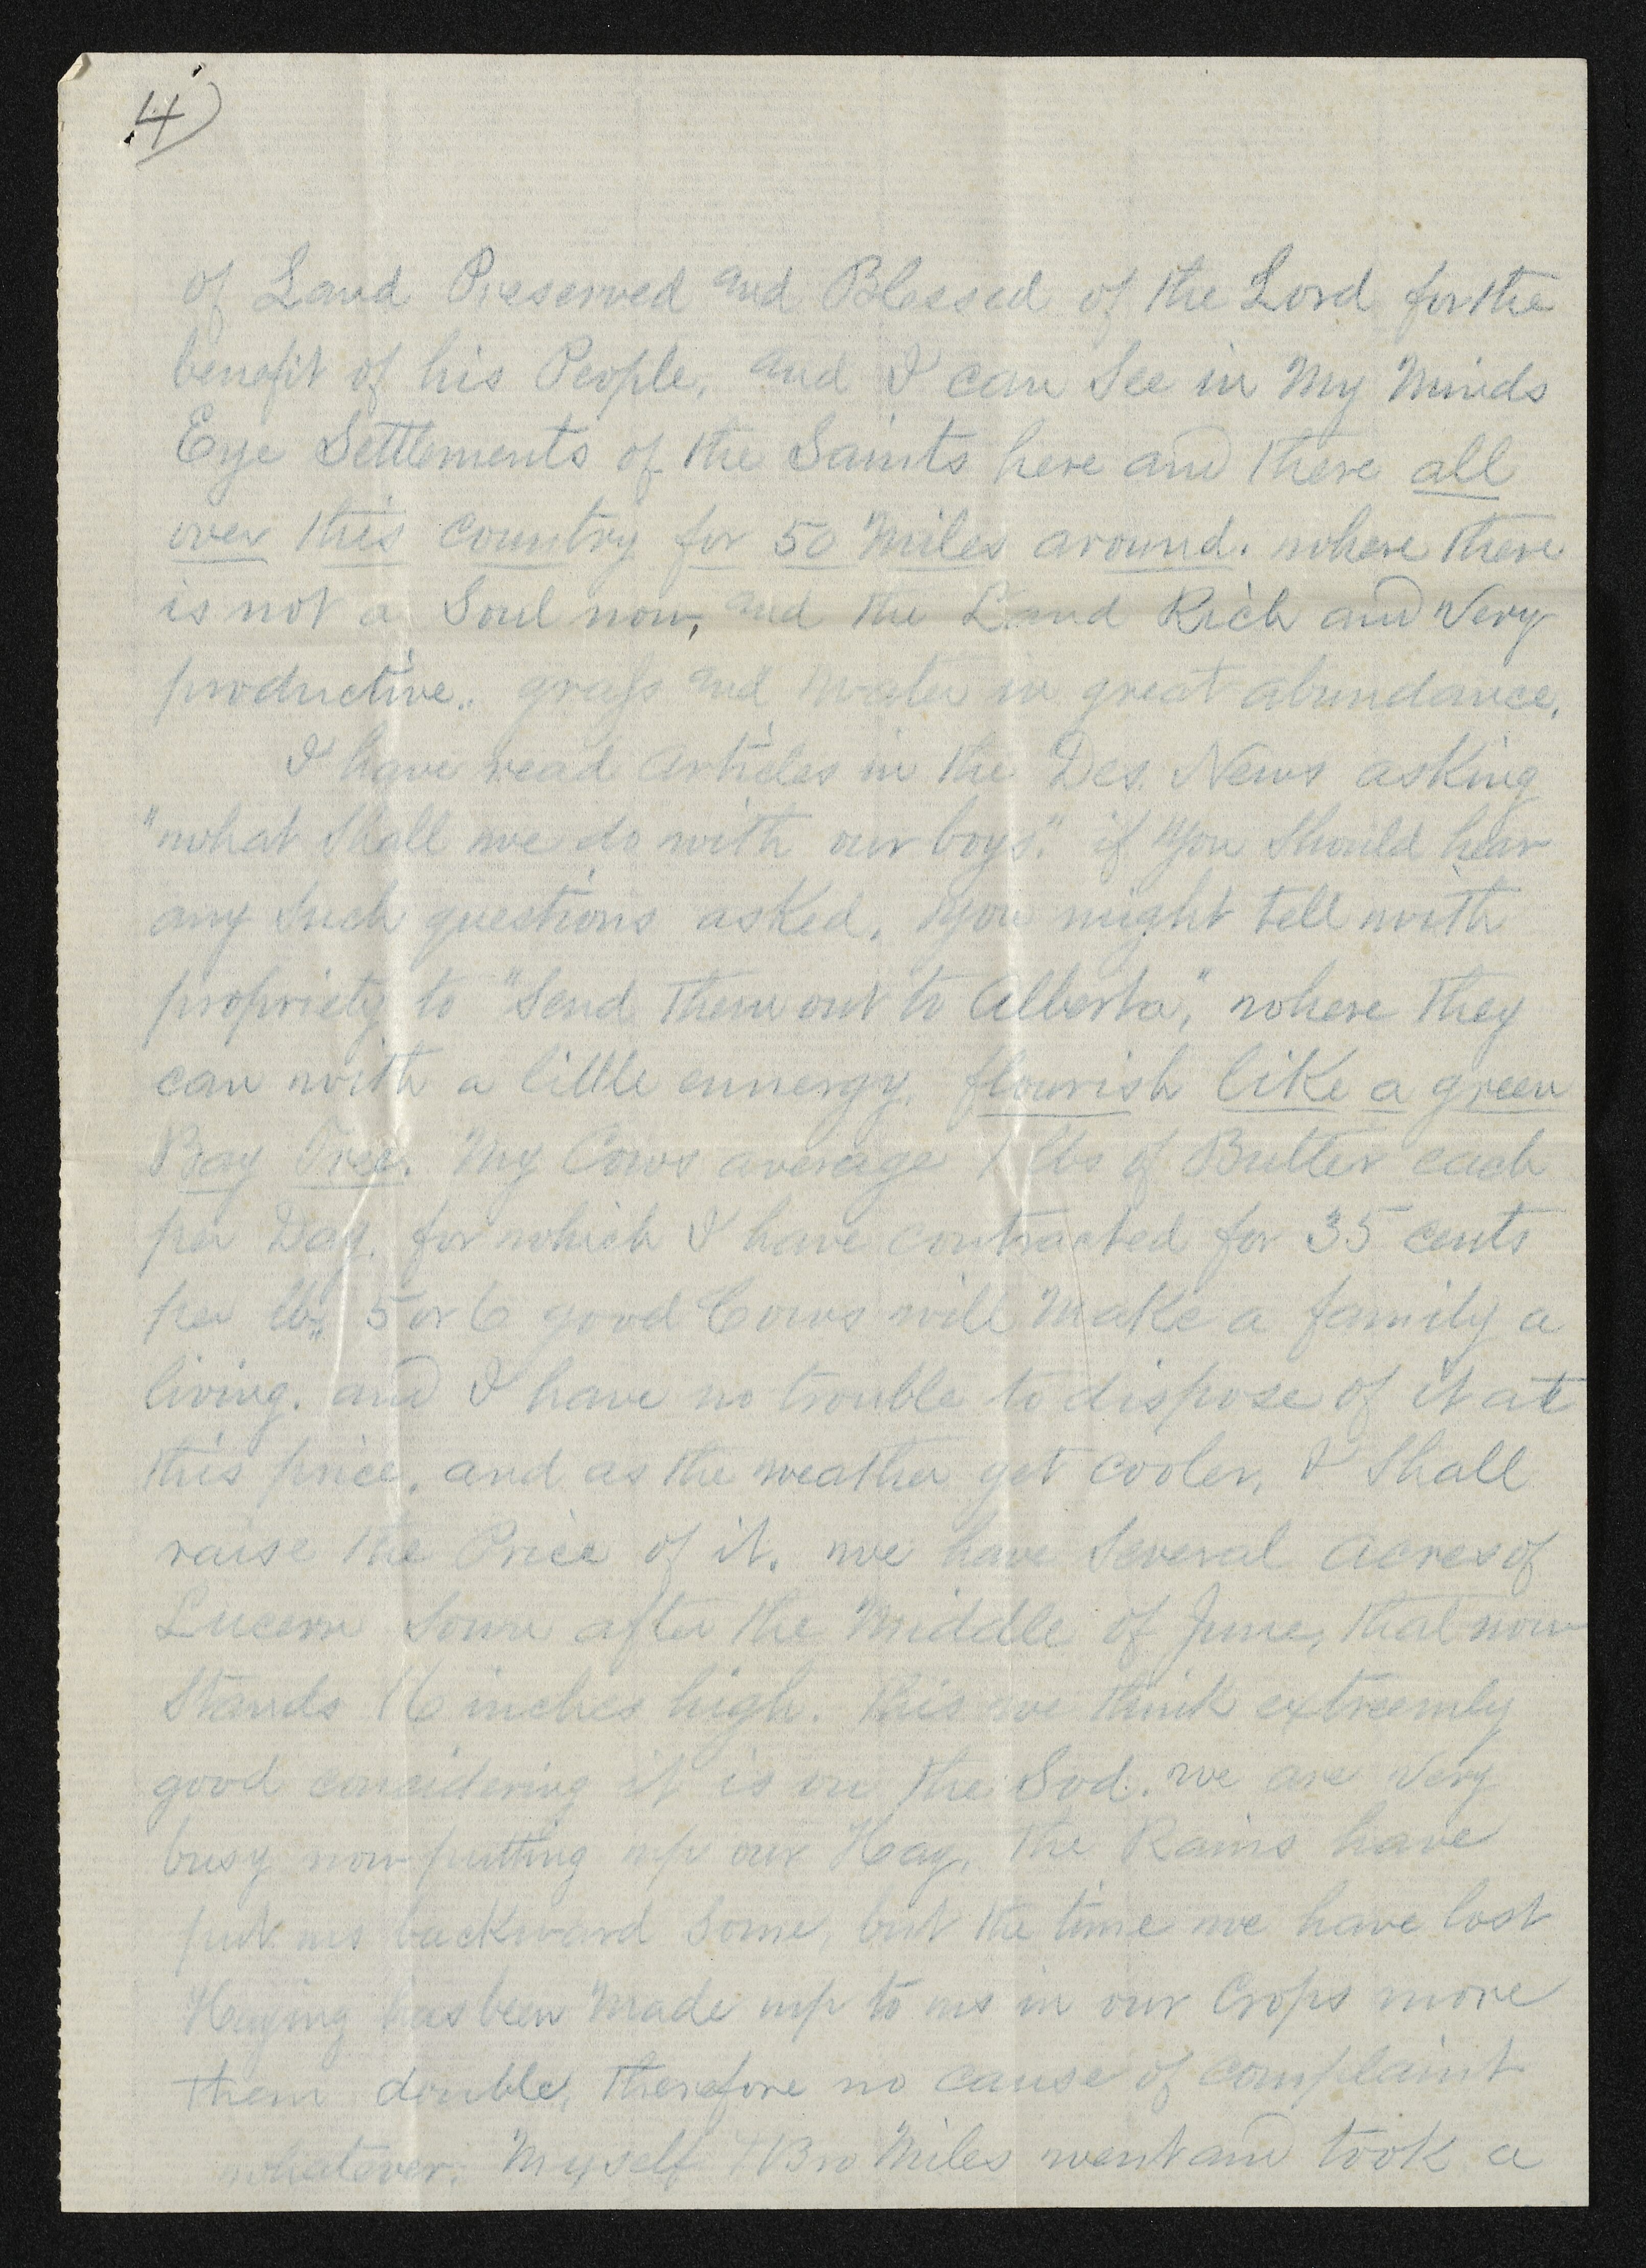 4)
of Land Preserved and Blessed of the Lord for the
benefit of his People, and I can See in My Minds
Eye Settlements of the Saints here and there all
over this Country for 50 Miles around. where there
is not a Soul now, and the Land Rich and Very
productive.. grass and water in great abundance.
I have read Articles in the Des. News asking
"what Shall we do with our boys." if You Should hear
any Such questions asked, You might tell with
propriety to "Send them out to Alberta", where they
can with a little ennergy, flourish like a green
Bay Tree. My Cows average 1 lbs of Butter each
per Day. for which I have contracted for 35 cents
per lb, 5 or 6 good Cows will Make a family a
living. and I have no trouble to dispose of it at
this price, and as the weather get cooler, I Shall
raise the Price of it. we have Several Acres of
Lucern Sown after the Middle of June, that now
Stands 16 inches high. this we think extreemly
good considering it is on the Sod. we are Very
busy now putting up our Hay, the Rains have
put us backward Some, but the time we have lost
Haying has been Made up to us in our Crops more
then double, therefore no cause of complaint
whatever. Myself & Bro Miles went and took a